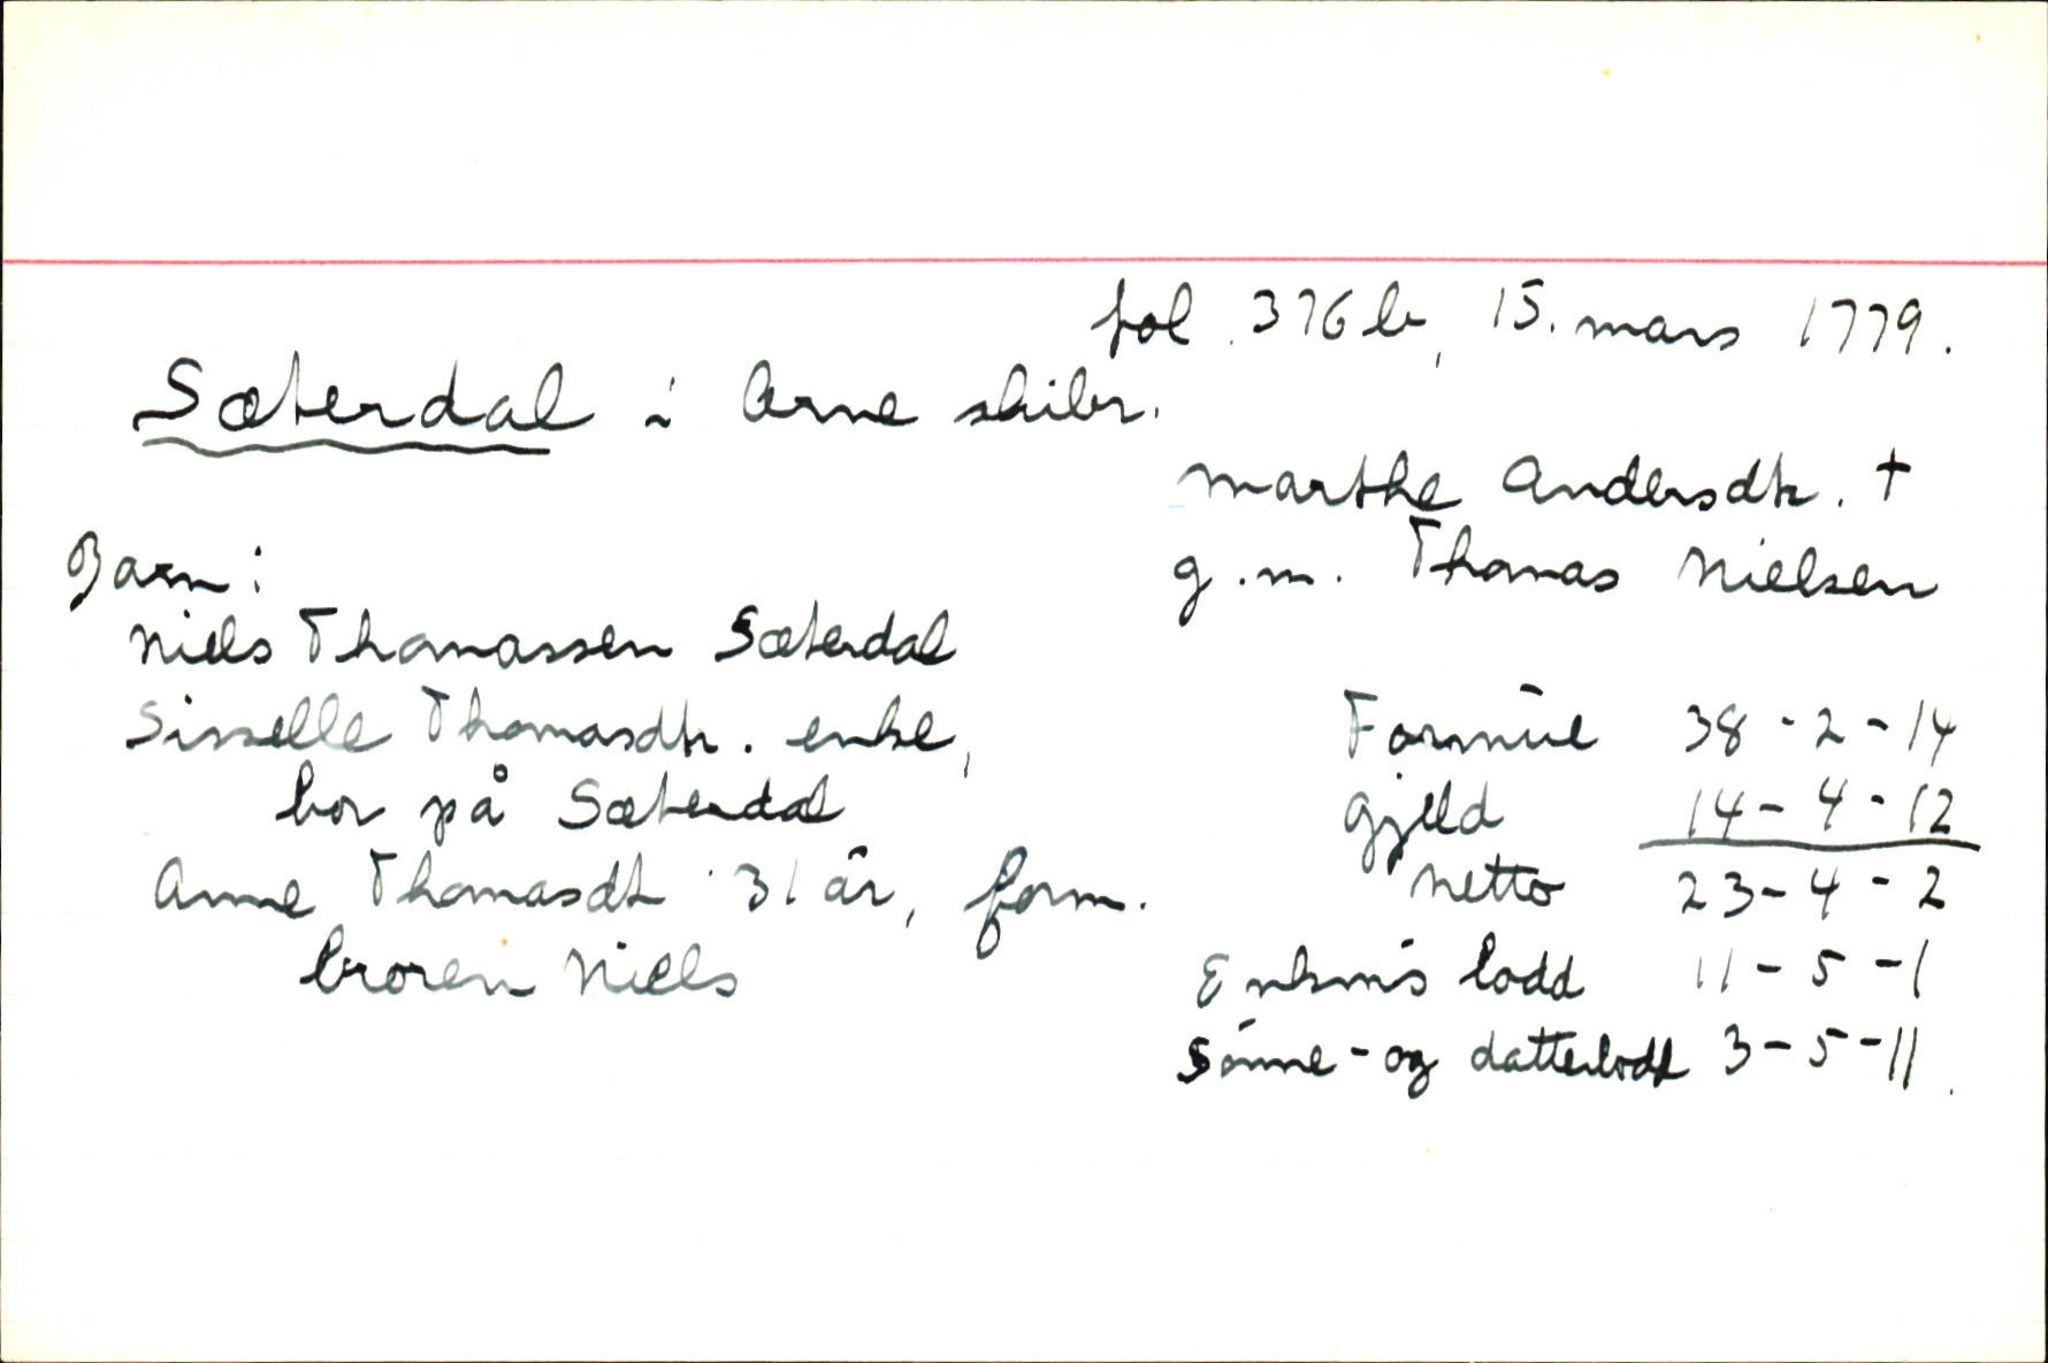 fol. 376b, 15. mars 1779.
Sæterdal i Arne skibr.
Marthe Andersdtr. †
g.m. Thomas Nielsen
Barn:
Niels Thomassen Sæterdal
Sisselle Thomasdtr. enke,
bor på Sæterdal
Anne Thomasdt 31 år, form.
broren Niels
Formue 38-2-14
Gjeld 14-4-12
Netto 23-4-2
Enkm's lodd 11-5-1
Sønne- og datterlodd 3-5-11.